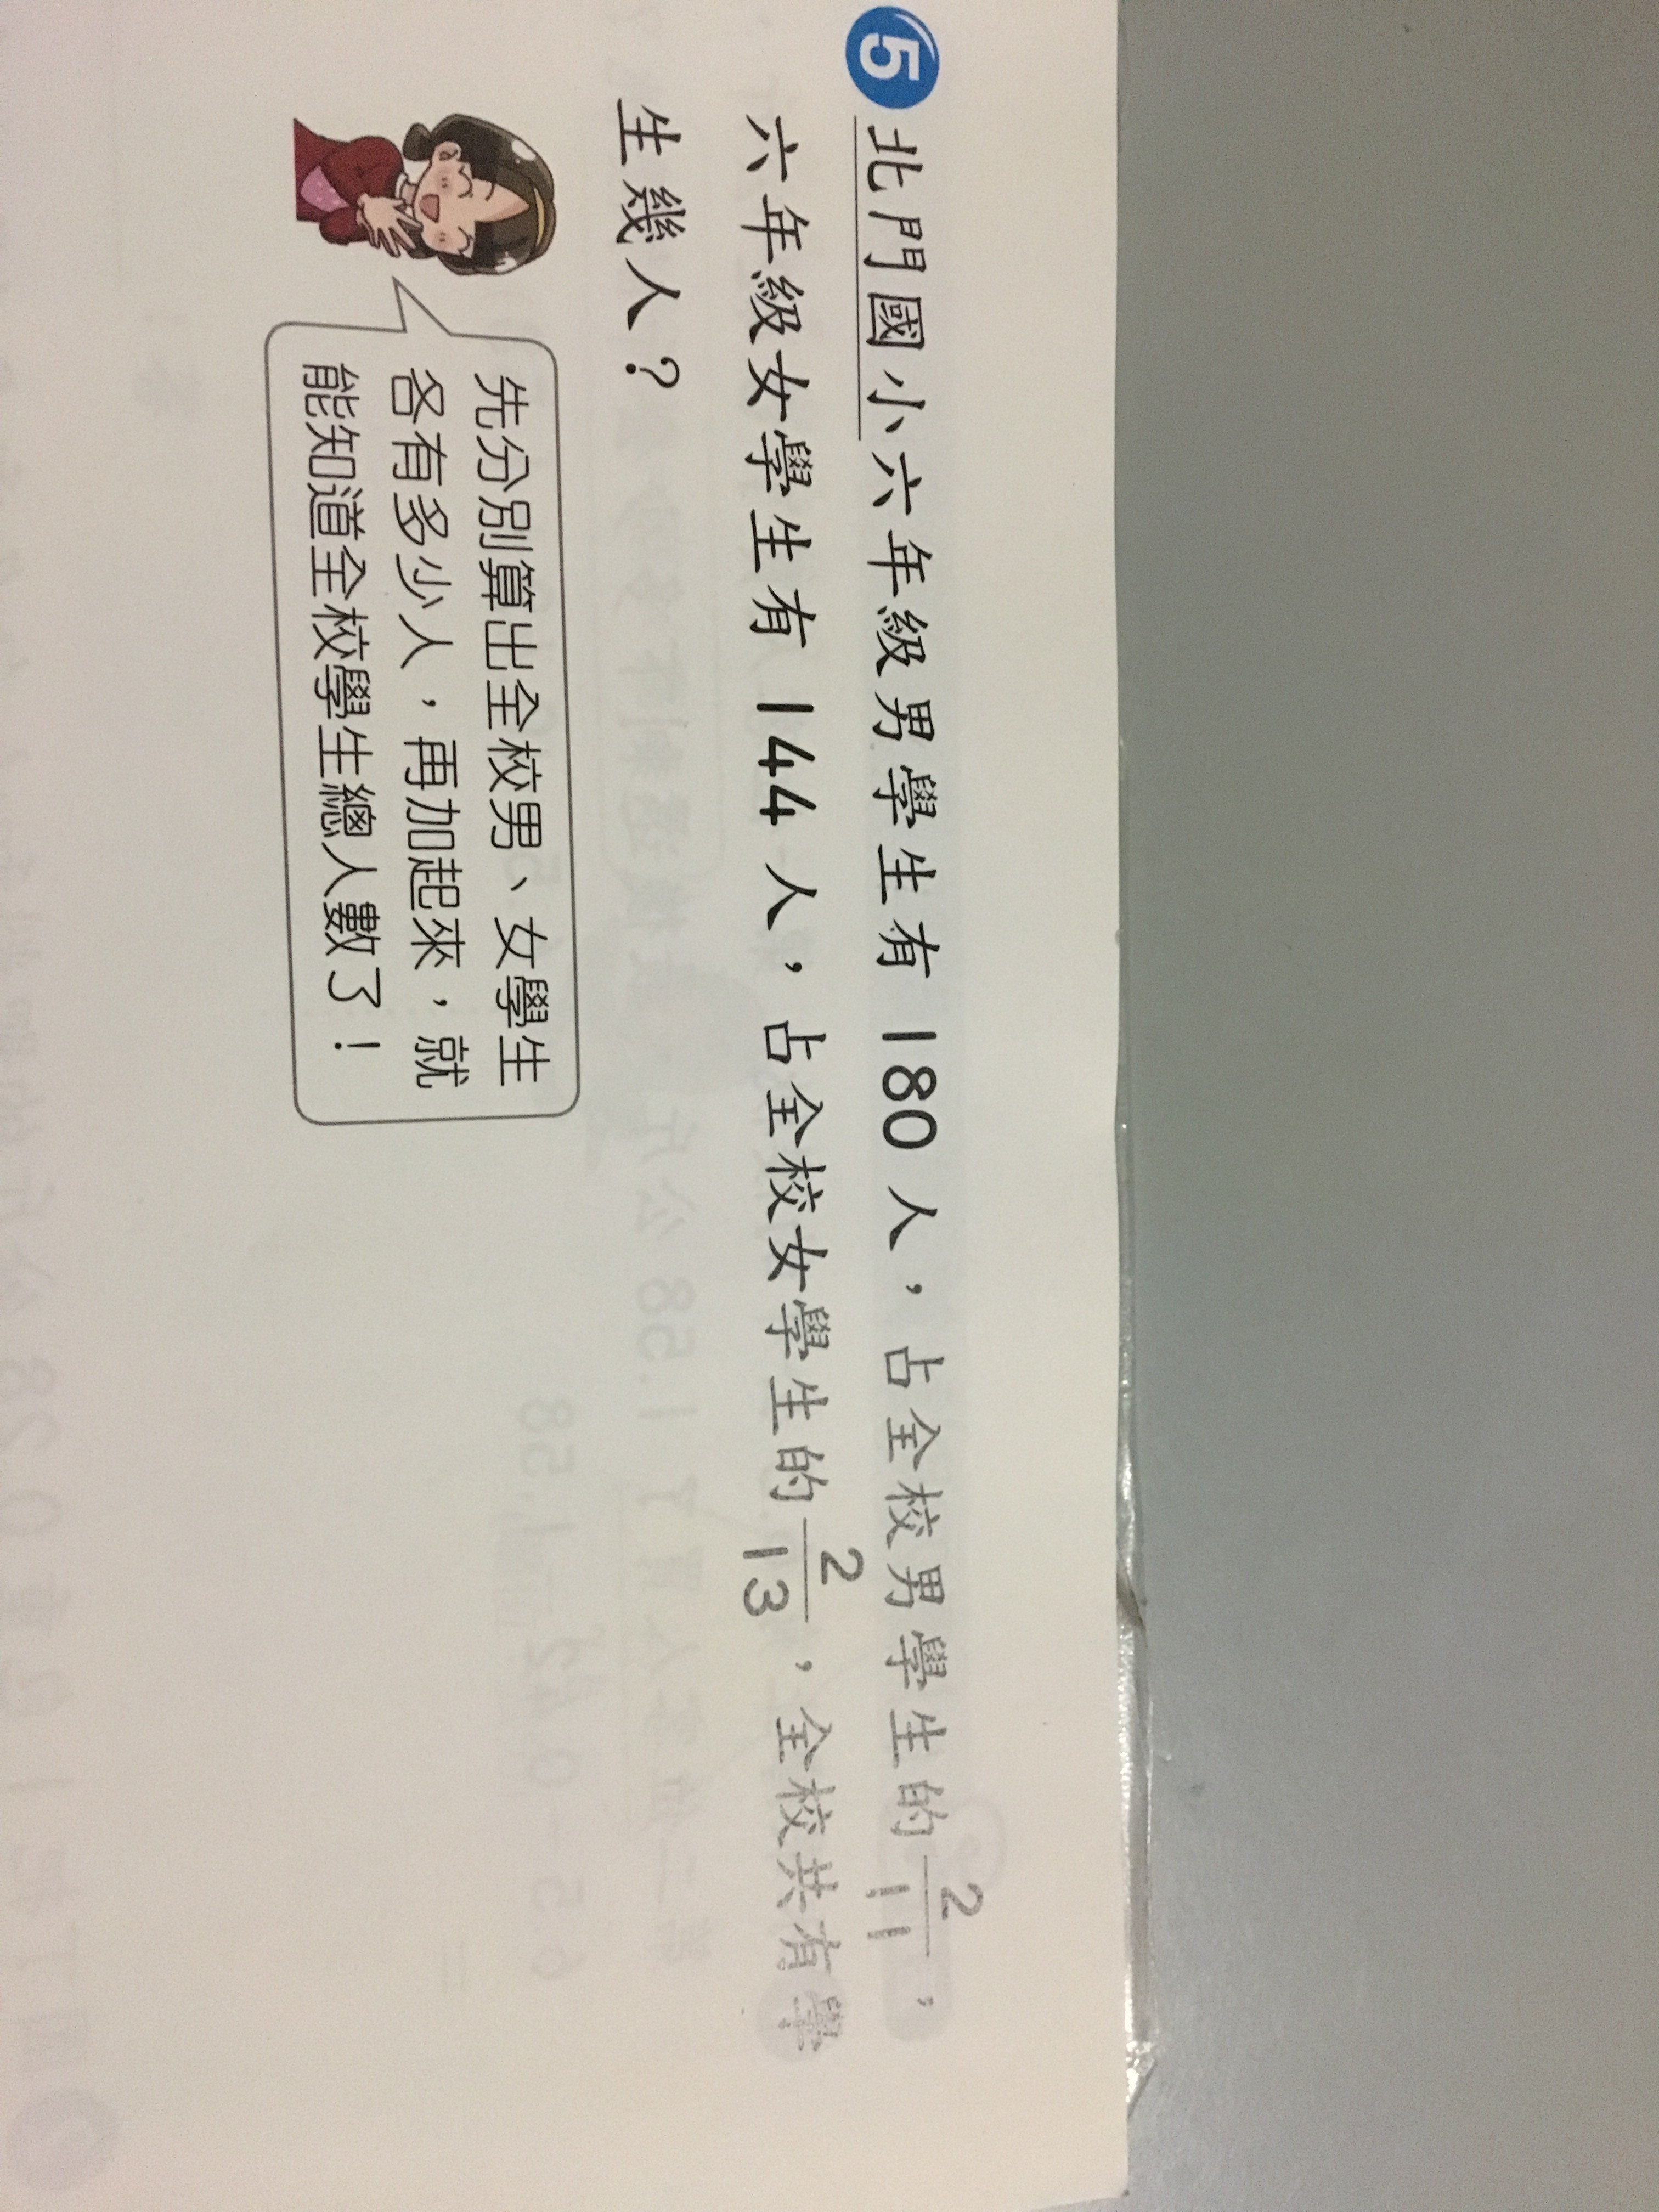 5 北門國小六年級男學生有 180 人，占全校男學生的 2/11，
六年級女學生有 144 人，占全校女學生的 2/13，全校共有學
生幾人？
先分別算出全校男、女學生
各有多少人，再加起來，就
能知道全校學生總人數了！